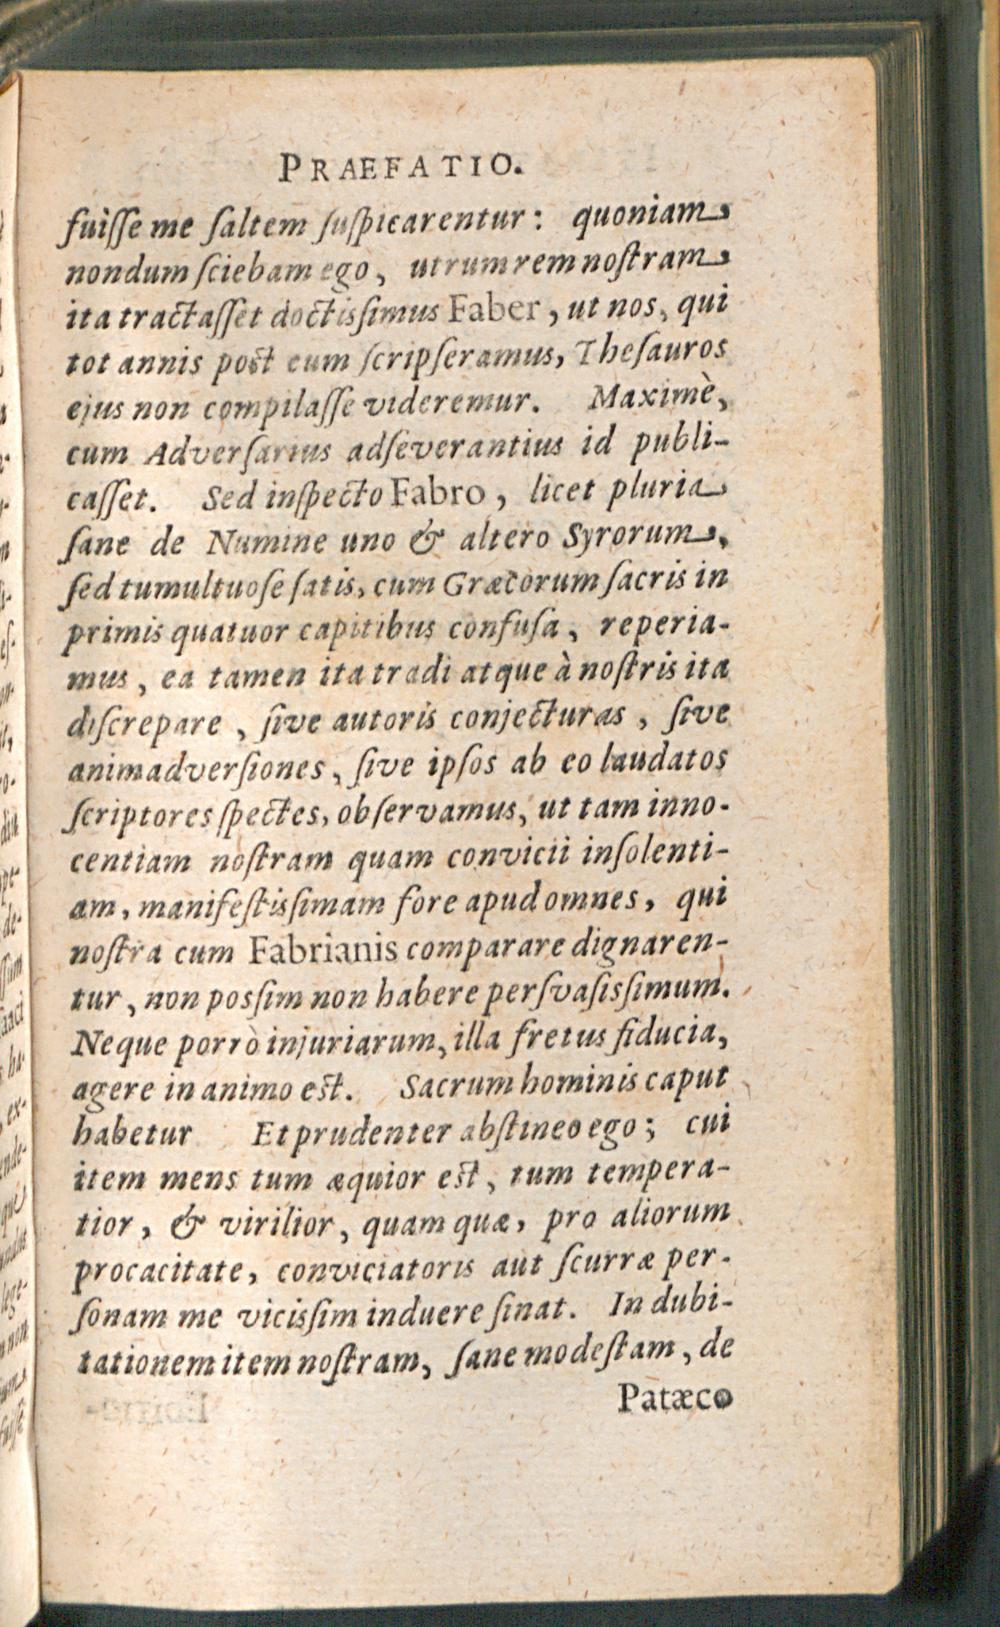 PRAEFATIO.
fuiſſe me ſaltem ſuſpicarentur: quoniam
nondum ſciebam ego, utrum rem noſtram
ita tractaſſet doctisſimus Faber, ut nos, qui
tot annis post eum ſcripſeramus, Theſauros
ejus non compilaſſe videremur. Maximè,
cum Adverſarius adſeverantius id publi-
caſſet. Sed inſpecto Fabro, licet pluria
ſane de Numine uno & altero Syrorum,
ſed tumultuoſe ſatis, cum Græcorum ſacris in
primis quatuor capitibus confuſa, reperia-
mus, ea tamen ita tradi atque à noſtris ita
diſcrepare, ſive autoris conjecturas, ſive
animadverſiones, ſive ipſos ab eo laudatos
ſcriptores ſpectes, obſervamus, ut tam inno-
centiam noſtram quam convicii inſolenti-
am, manifeſtisſimam fore apud omnes, qui
noſtra cum Fabrianis comparare dignaren-
tur, non posſim non habere perſvaſisſimum.
Neque porrò injuriarum, illa fretus fiducia,
agere in animo est. Sacrum hominis caput
habetur Et prudenter abſtineo ego; cui
item mens tum æquior est, tum tempera-
tior, & virilior, quam quæ, pro aliorum
procacitate, conviciatoris aut ſcurræ per-
ſonam me vicisſim induere ſinat. In dubi-
tationem item noſtram, ſane modeſtam, de
Patæco